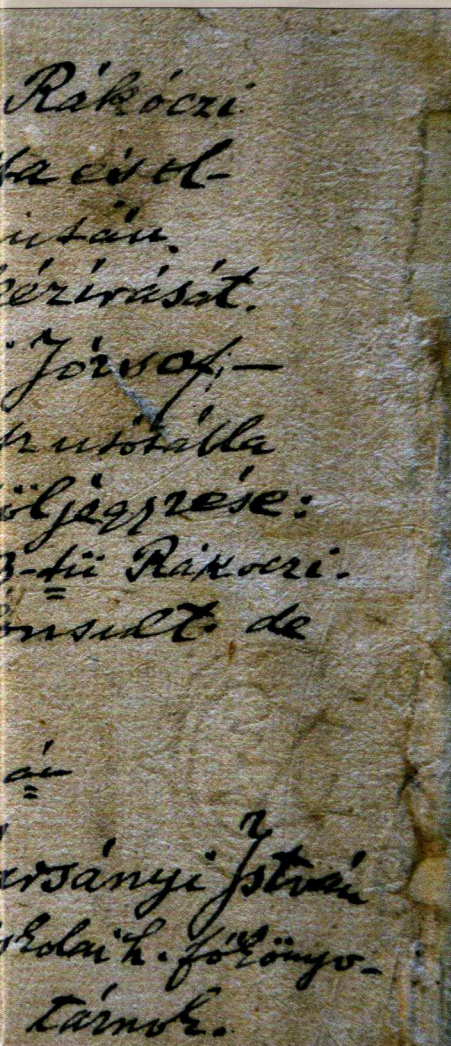 Rákóczi
és ol-
után
kézírását.
József, —
utósálla
följegyzése:
3-tü Rákoczi.
onsult. de
án
arsányi István
skolai h. főköny-
tárnok.